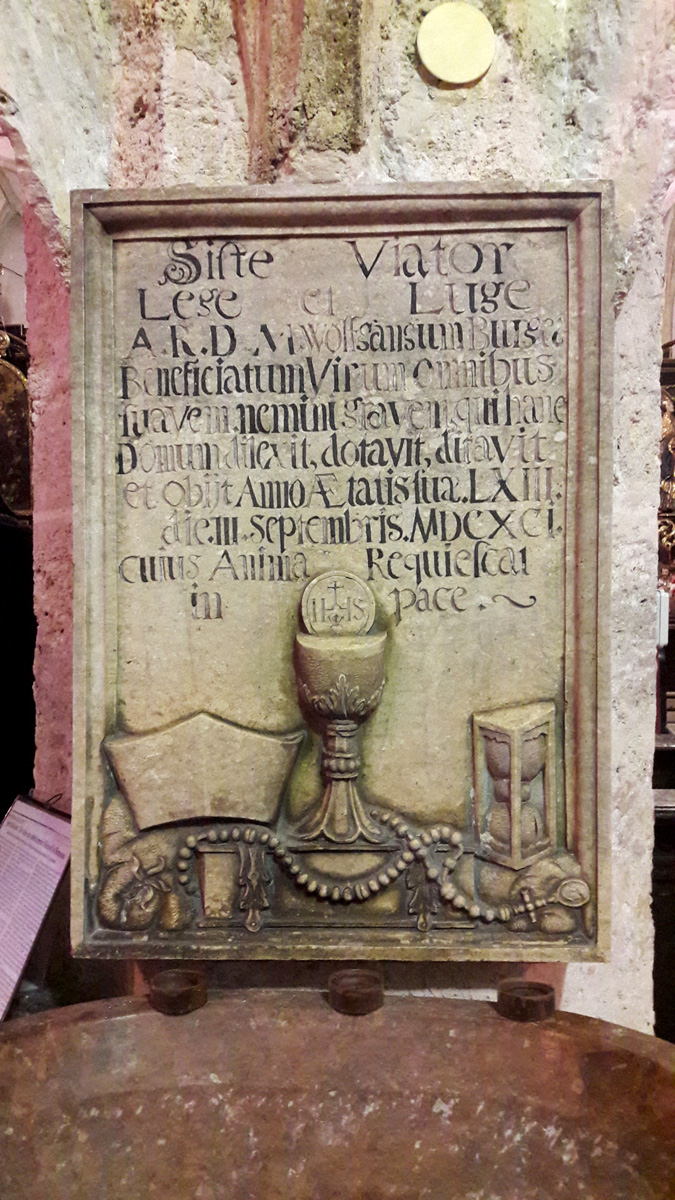 Siste Viator
Lege et Luge
A.R.D. M. Wolfgangum
Beneficiatum Virum omnibus
suavem, nemini gravem, qui hanc
Domum dilexit, dotavit, ditavit
et obijt Anno Ætatis suæ. LXIII.
die. III. Septembris. MDCXCI.
cuius Anima Requiescat
in pace.
IHS